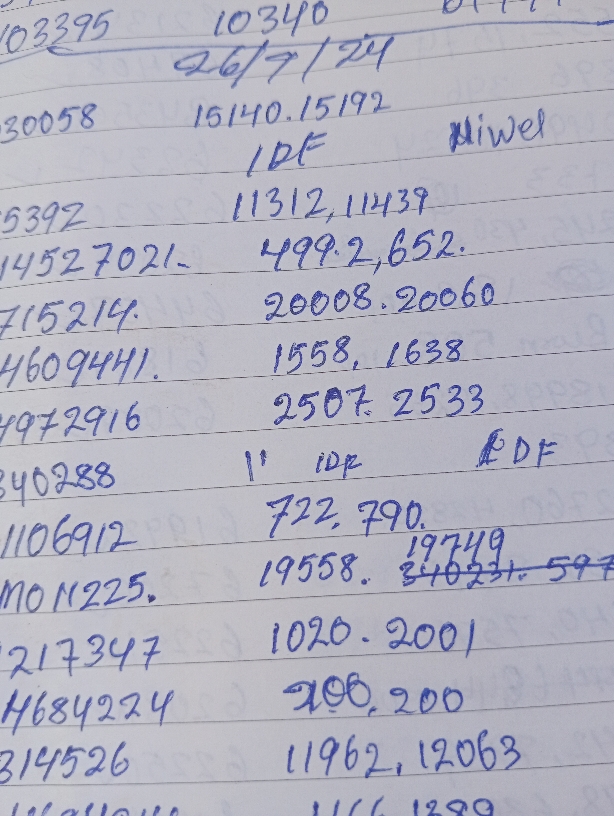 103395 10340
26/7/24
30058 15140.15192
IDF Niwel
5392 11312, 11439
14527021- 499.2, 652.
715214. 20008.20060
4609441. 1558, 1638
4972916 2507. 2533
340288 11 IDF IDF
1106912 722, 790.
19749
MON225. 19558. 340231. 597
217347 1020. 2001
4684224 200, 200
314526 11962, 12063
1166 1389